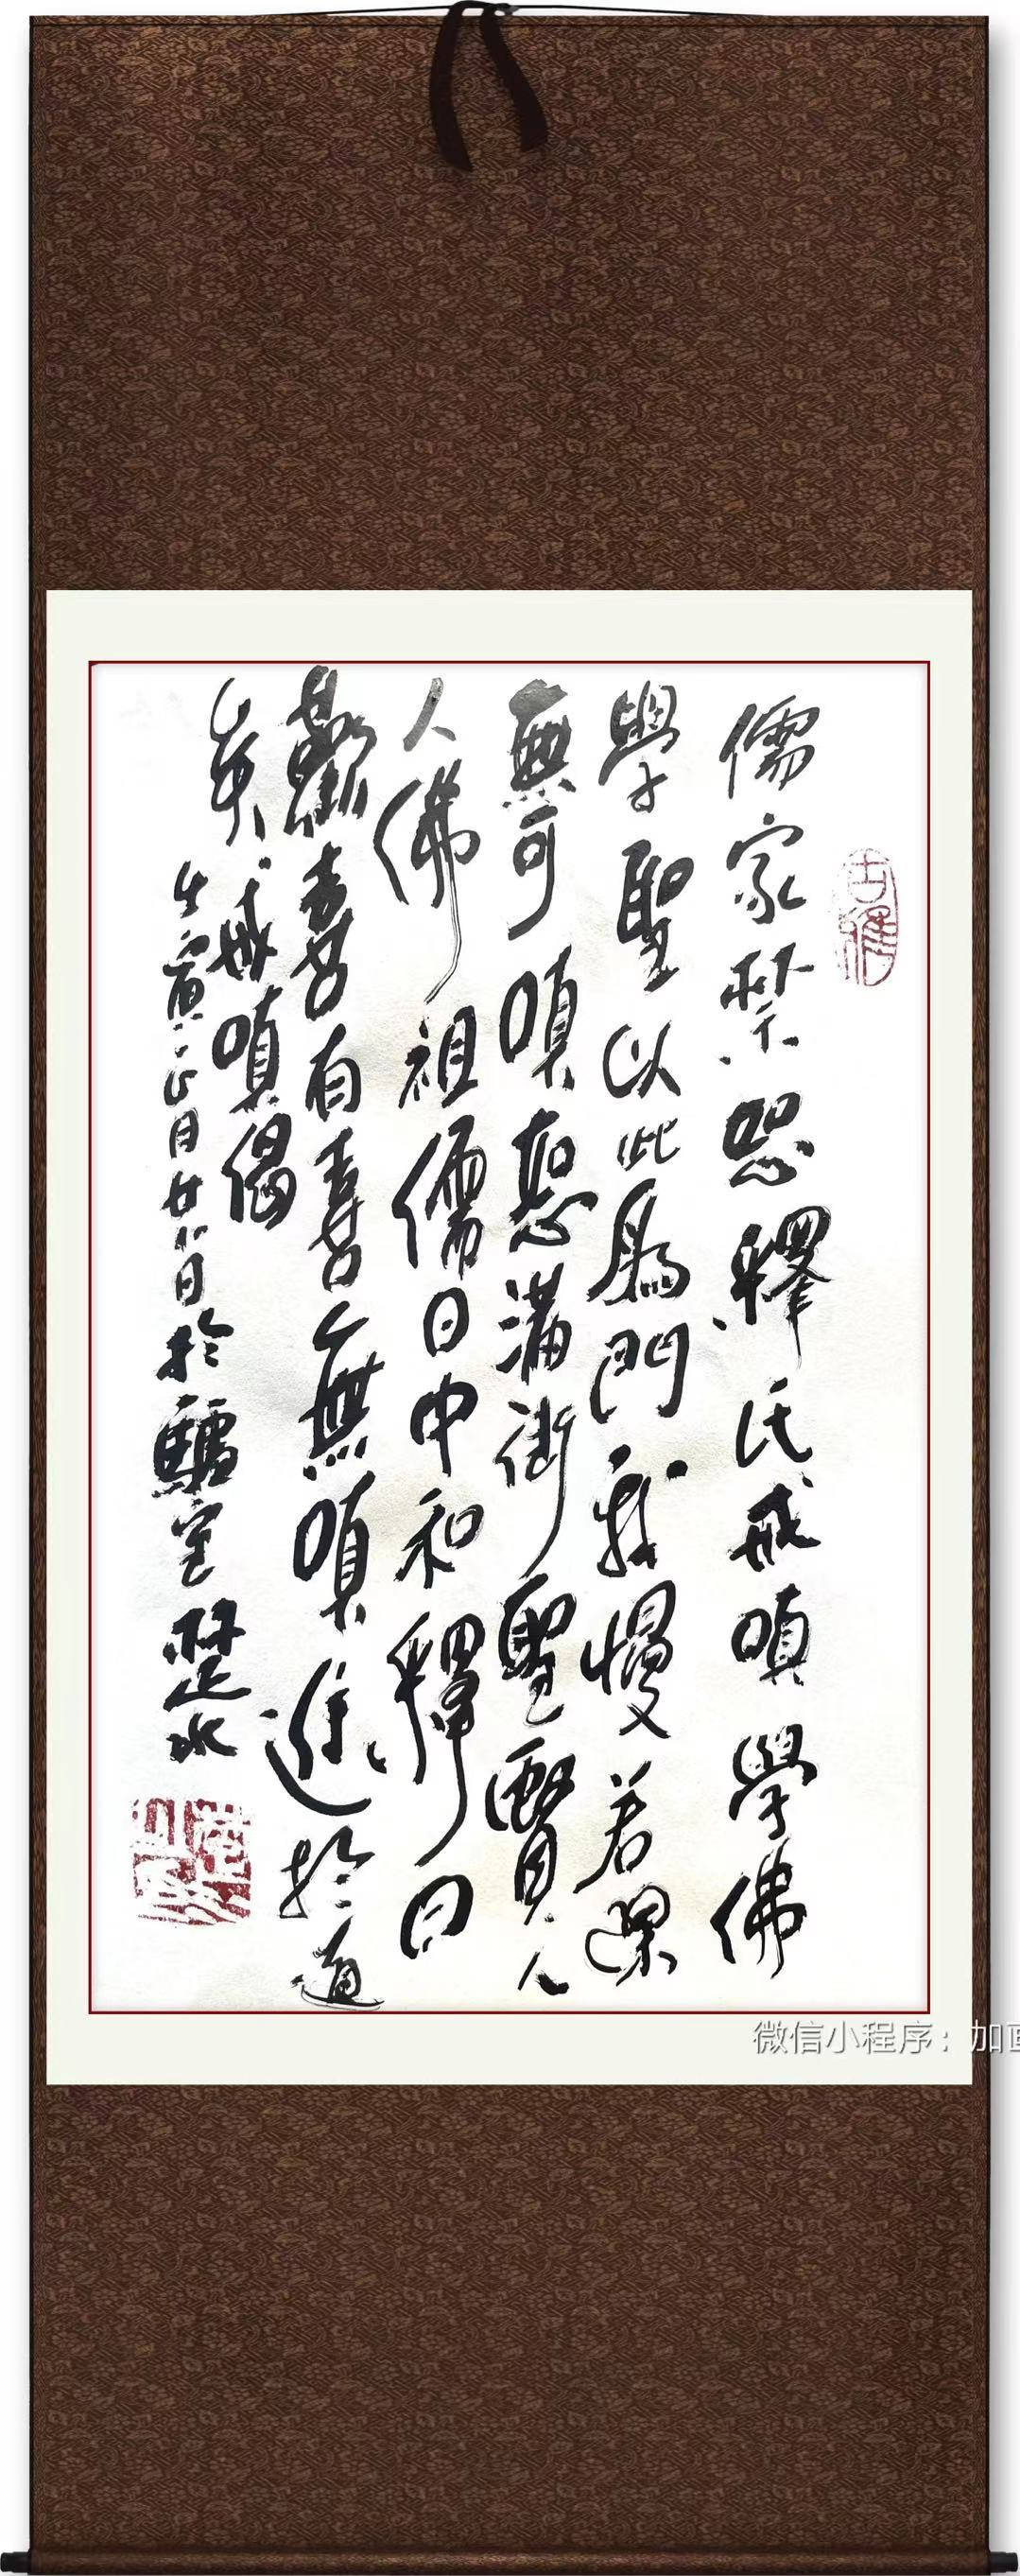 儒家禁怒釋氏戒嗔學佛
學聖以此為門我慢若深
無可嗔怒滿街聖賢人
人佛祖儒曰中和釋曰
歡喜有喜無嗔進於道
矣戒嗔偈
壬寅正月廿八日於驢室楚水
古雅
微信小程序：加画